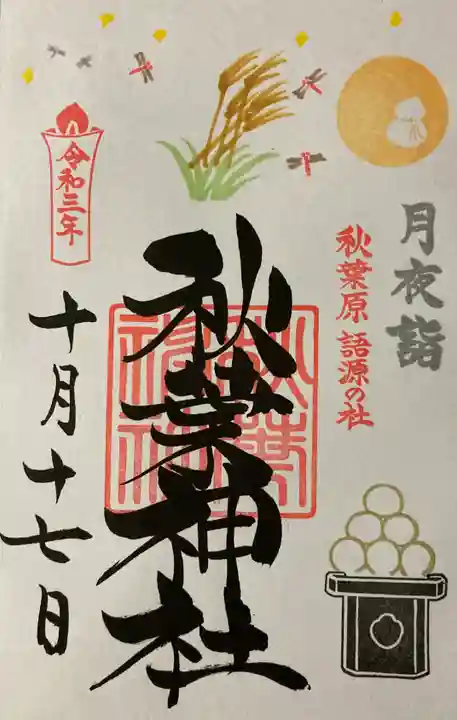 月夜詣
秋葉原 語源の社
秋葉神社
令和三年
十月十七日